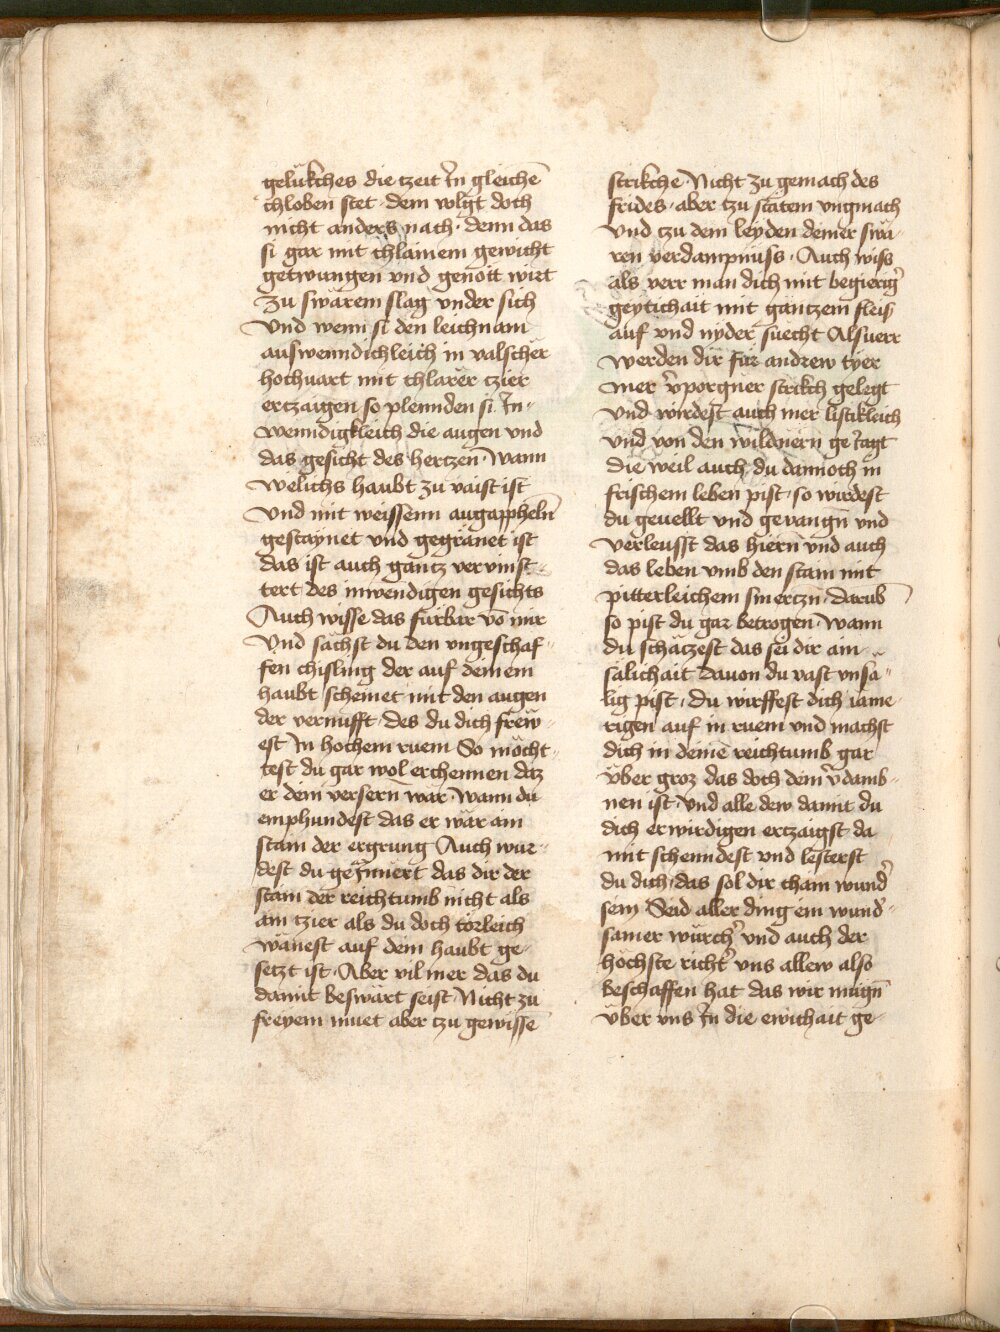 gelükches die tzeit Jn gleichē
chloben stet · dem volgt doch
nicht anders nach · denn das
si gar mit chlainem gewicht
getwungen vnd genott wirt
zu swärem slag vnder sich
Vnd wenn si den leichnam
auswenndichleich in valscher
hochuart mit chlarer tzier
ertzaigen so plennden si Jn-
wenndigkleich die augen vnd
das gesicht des hertzen · Wann
welichs haubt zu vaist ist
Vnd mit weissenn augappheln̄
gestaynet vnd gegränet ist
das ist auch gantz vervinst-
tert des inwendigen gesichts
Auch wisse das fürbar vō mir
Vnd sächst du den vngeschaf-
fen chisling der auf deinem
haubt scheinet mit den augen
der vernufft · des du dich frew-
est Jn hochem ruem So möcht-
test du gar wol erchennen daz
er dem versern wär · Wann du
emphundest das er wär ain
stain der ergrung Auch wur-
dest du geJnnert das dir der
stain der reichtumb nicht als
ain tzier als du doch törleich
wänest auf dem haubt ge-
setzt ist · Aber vil mer das du
damit beswärt seist · Nicht zu
freyem muet aber tzu gewissē
strikche Nicht zu gemach des
frides · aber tzu stätem vngmach
Vnd tzu dem leyden deiner swä-
ren verdampnüss · Auch wiss
als verr man dich mit begierg̉
geytichait mit gantzem fleiß
auf vnd nyder suecht Alsuerr
werden dir für andrew tyer
mer v̉porgner strikch gelegt
Vnd wirdest auch mer listikleich
Vnd von den wildnern geJagt
die weil auch du dannoch in
frischem leben pist · so wirdest
du geuellt vnd gevangn̄ vnd
verleusst das hiern vnd auch
das leben vmb den stain mit
pitterleichem smertzn̄ · darūb
so pist du gar betrogen · Wann
du schätzest das sei dir ain
sälichait dauon du vast vnsä-
lig pist · du wirffest dich iäme-
rigen auf in ruem vnd machst
dich in deinē reichtumb gar
über groz das doch dem v̉damb-
nen ist Vnd alle dew damit du
dich erwirdigen ertzaigst da
mit schenndest vnd lesterst
du dich · das sol dir chain wund̉
sein Seid aller ding ein wund̉-
samer würch̉ vnd auch der
höchste richt̉ vns allew also
beschaffen hat das wir mügn̄
über vns Jn die ewichait ge-